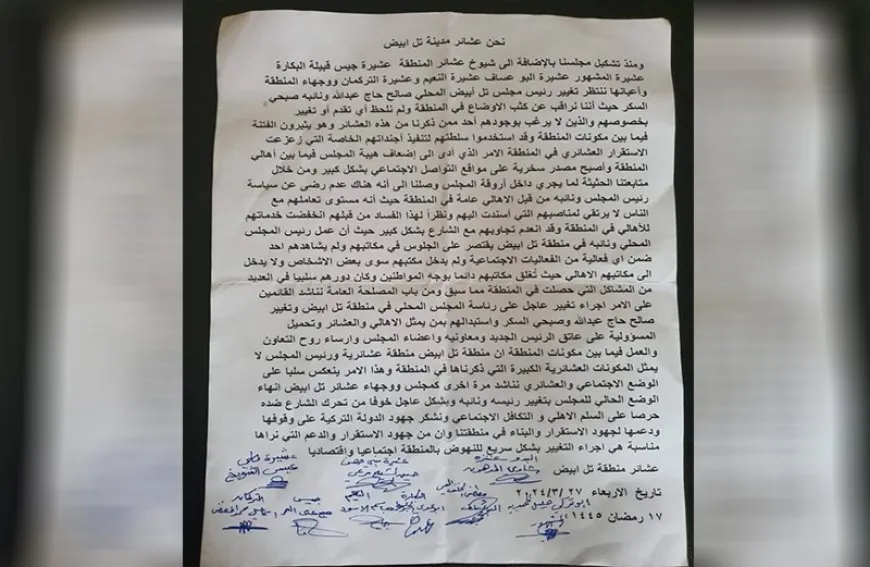 نحن عشائر مدينة تل ابيض
ومنذ تشكيل مجلسنا بالإضافة الى شيوخ عشائر المنطقة عشيرة جيس قبيلة البكارة
عشيرة المشهور عشيرة البو عساف عشيرة النعيم وعشيرة التركمان ووجهاء المنطقة
وأعيانها ننتظر تغيير رئيس مجلس تل أبيض المحلي صالح حاج عبدالله ونائبه صبحي
السكر حيث أننا نراقب عن كثب الاوضاع في المنطقة ولم نلحظ أي تقدم أو تغيير
بخصوصهم والذين لا يرغب بوجودهم أحد ممن ذكرنا من هذه العشائر وهو يثيرون الفتنة
فيما بين مكونات المنطقة وقد استخدموا سلطتهم لتنفيذ أجنداتهم الخاصة التي زعزعت
الاستقرار العشائري في المنطقة الامر الذي أدى الى إضعاف هيبة المجلس فيما بين أهالي
المنطقة وأصبح مصدر سخرية على مواقع التواصل الاجتماعي بشكل كبير ومن خلال
متابعتنا الحثيثة لما يجري داخل أروقة المجلس وصلنا الى أنه هناك عدم رضى عن سياسة
رئيس المجلس ونائبه من قبل الاهالي عامة في المنطقة حيث أنه مستوى تعاملهم مع
الناس لا يرتقي لمناصبهم التي أسندت اليهم ونظراً لهذا الفساد من قبلهم انخفضت خدماتهم
للأهالي في المنطقة وقد انعدم تجاوبهم مع الشارع بشكل كبير حيث أن عمل رئيس المجلس
المحلي ونائبه في منطقة تل ابيض يقتصر على الجلوس في مكاتبهم ولم يشاهدهم احد
ضمن اي فعالية من الفعاليات الاجتماعية ولم يدخل مكتبهم سوى بعض الاشخاص ولا يدخل
الى مكاتبهم الاهالي حيث تغلق مكاتبهم دائما بوجه المواطنين وكان دورهم سلبيا في العديد
من المشاكل التي حصلت في المنطقة مما سبق ومن باب المصلحة العامة نناشد القائمين
على الامر اجراء تغيير عاجل على رئاسة المجلس المحلي في منطقة تل ابيض وتغيير
صالح حاج عبدالله وصبحي السكر واستبدالهم بمن يمثل الاهالي والعشائر وتحميل
المسؤولية على عاتق الرئيس الجديد ومعاونيه واعضاء المجلس وارساء روح التعاون
والعمل فيما بين مكونات المنطقة ان منطقة تل ابيض منطقة عشائرية ورئيس المجلس لا
يمثل المكونات العشائرية الكبيرة التي ذكرناها في المنطقة وهذا الامر ينعكس سلبا على
الوضع الاجتماعي والعشائري نناشد مرة اخرى كمجلس ووجهاء عشائر تل ابيض انهاء
الوضع الحالي للمجلس بتغيير رئيسه ونائبه وبشكل عاجل خوفا من تحرك الشارع ضده
حرصا على السلم الاهلي و التكافل الاجتماعي ونشكر جهود الدولة التركية على وقوفها
ودعمها لجهود الاستقرار والبناء في منطقتنا وان من جهود الاستقرار والدعم التي نراها
مناسبة هي اجراء التغيير بشكل سريع للنهوض بالمنطقة اجتماعيا واقتصاديا
عشائر منطقة تل ابيض
تاريخ الاربعاء ٢٠٢٤/٣/٢٧
١٧ رمضان ١٤٤٥